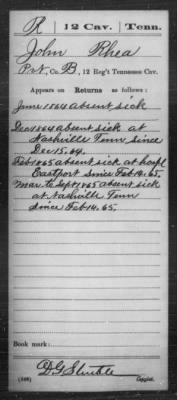 R | 12 Cav. | Tenn.
John Rhea
Pvt, Co. B, 12 Reg't Tennessee Cav.
Appears on Returns as follows:
June 1864 absent sick
Dec 1864 absent sick at
Nashville Tenn since
Dec 15. 64.
Feb 1865 absent sick at hospl
Eastport since Feb 14. 65.
Mar. to Sept 1865 absent sick
at Nashville Tenn
since Feb 14. 65.
Book mark:
(546)
Copyist.